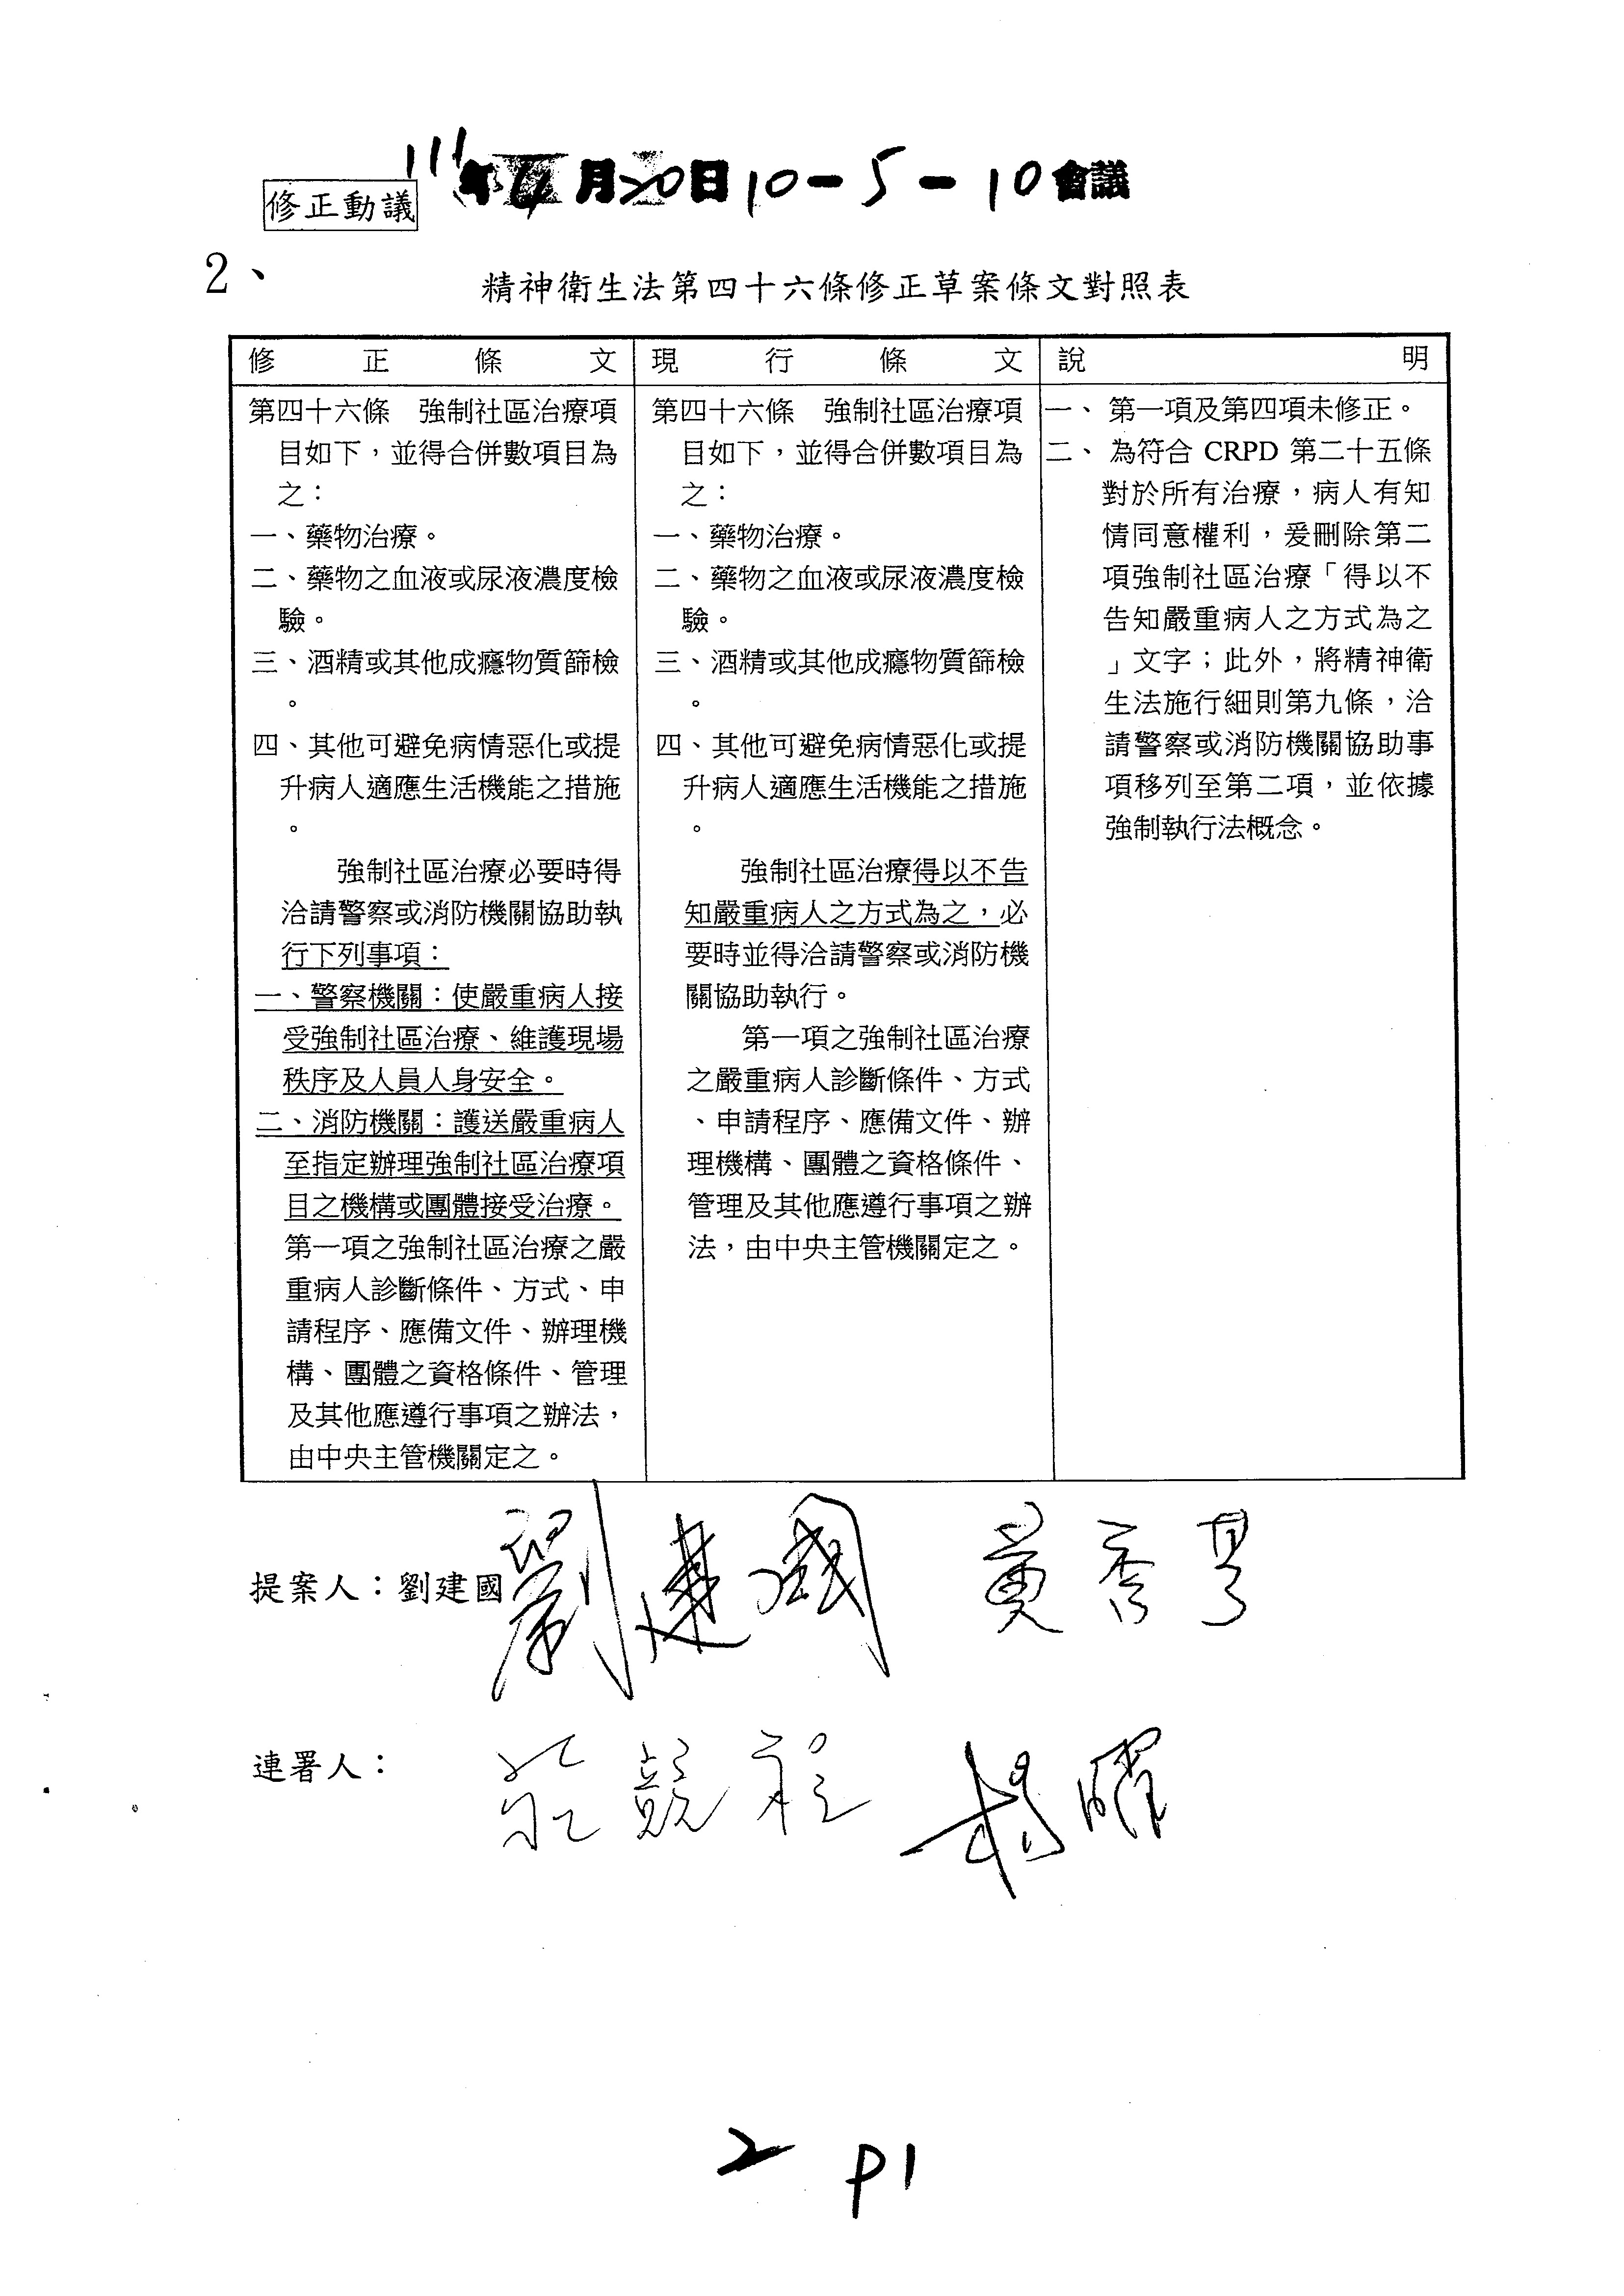 111年4月20日10-5-10會議
修正動議
2、
精神衛生法第四十六條修正草案條文對照表
修正條文
第四十六條　強制社區治療項
目如下，並得合併數項目為
之：
一、藥物治療。
二、藥物之血液或尿液濃度檢
驗。
三、酒精或其他成癮物質篩檢
。
四、其他可避免病情惡化或提
升病人適應生活機能之措施
。
強制社區治療必要時得
洽請警察或消防機關協助執
行下列事項：
一、警察機關：使嚴重病人接
受強制社區治療、維護現場
秩序及人員人身安全。
二、消防機關：護送嚴重病人
至指定辦理強制社區治療項
目之機構或團體接受治療。
第一項之強制社區治療之嚴
重病人診斷條件、方式、申
請程序、應備文件、辦理機
構、團體之資格條件、管理
及其他應遵行事項之辦法，
由中央主管機關定之。
現行條文
第四十六條　強制社區治療項
目如下，並得合併數項目為
之：
一、藥物治療。
二、藥物之血液或尿液濃度檢
驗。
三、酒精或其他成癮物質篩檢
。
四、其他可避免病情惡化或提
升病人適應生活機能之措施
。
強制社區治療得以不告
知嚴重病人之方式為之，必
要時並得洽請警察或消防機
關協助執行。
第一項之強制社區治療
之嚴重病人診斷條件、方式
、申請程序、應備文件、辦
理機構、團體之資格條件、
管理及其他應遵行事項之辦
法，由中央主管機關定之。
說明
一、第一項及第四項未修正。
二、為符合 CRPD 第二十五條
對於所有治療，病人有知
情同意權利，爰刪除第二
項強制社區治療「得以不
告知嚴重病人之方式為之
」文字；此外，將精神衛
生法施行細則第九條，洽
請警察或消防機關協助事
項移列至第二項，並依據
強制執行法概念。
提案人：劉建國 劉建國 黃秀芳
連署人： 莊競程 楊曜
2 P1